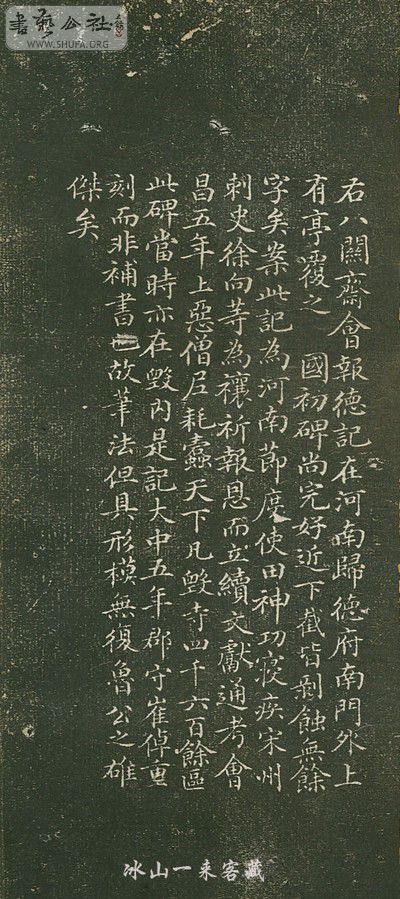 書藝公社
WWW.SHUFA.ORG
右八關齋會報德記在河南歸德府南門外上
有亭覆之 國初碑尚完好近下截皆剝蝕無餘
字矣案此記為河南節度使田神功寢疾宋州
刺史徐向等為禳祈報恩而立續文獻通考會
昌五年上惡僧尼耗蠹天下凡毀寺四千六百餘區
此碑當時亦在毀內是記大中五年郡守崔倬重
刻而非補書也故筆法但具形模無復魯公之雄
傑矣
冰山一来客藏